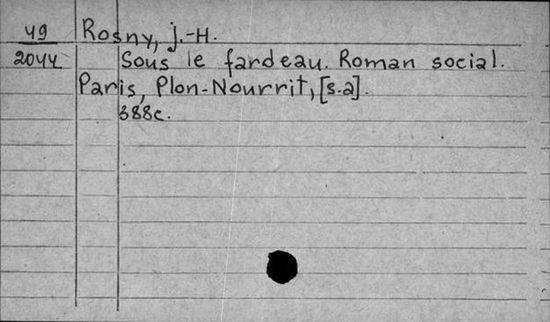 49
2044
Rosny, J.-H.
Sous le fardeau. Roman social.
Paris, Plon-Nourrit, [s.a].
388c.